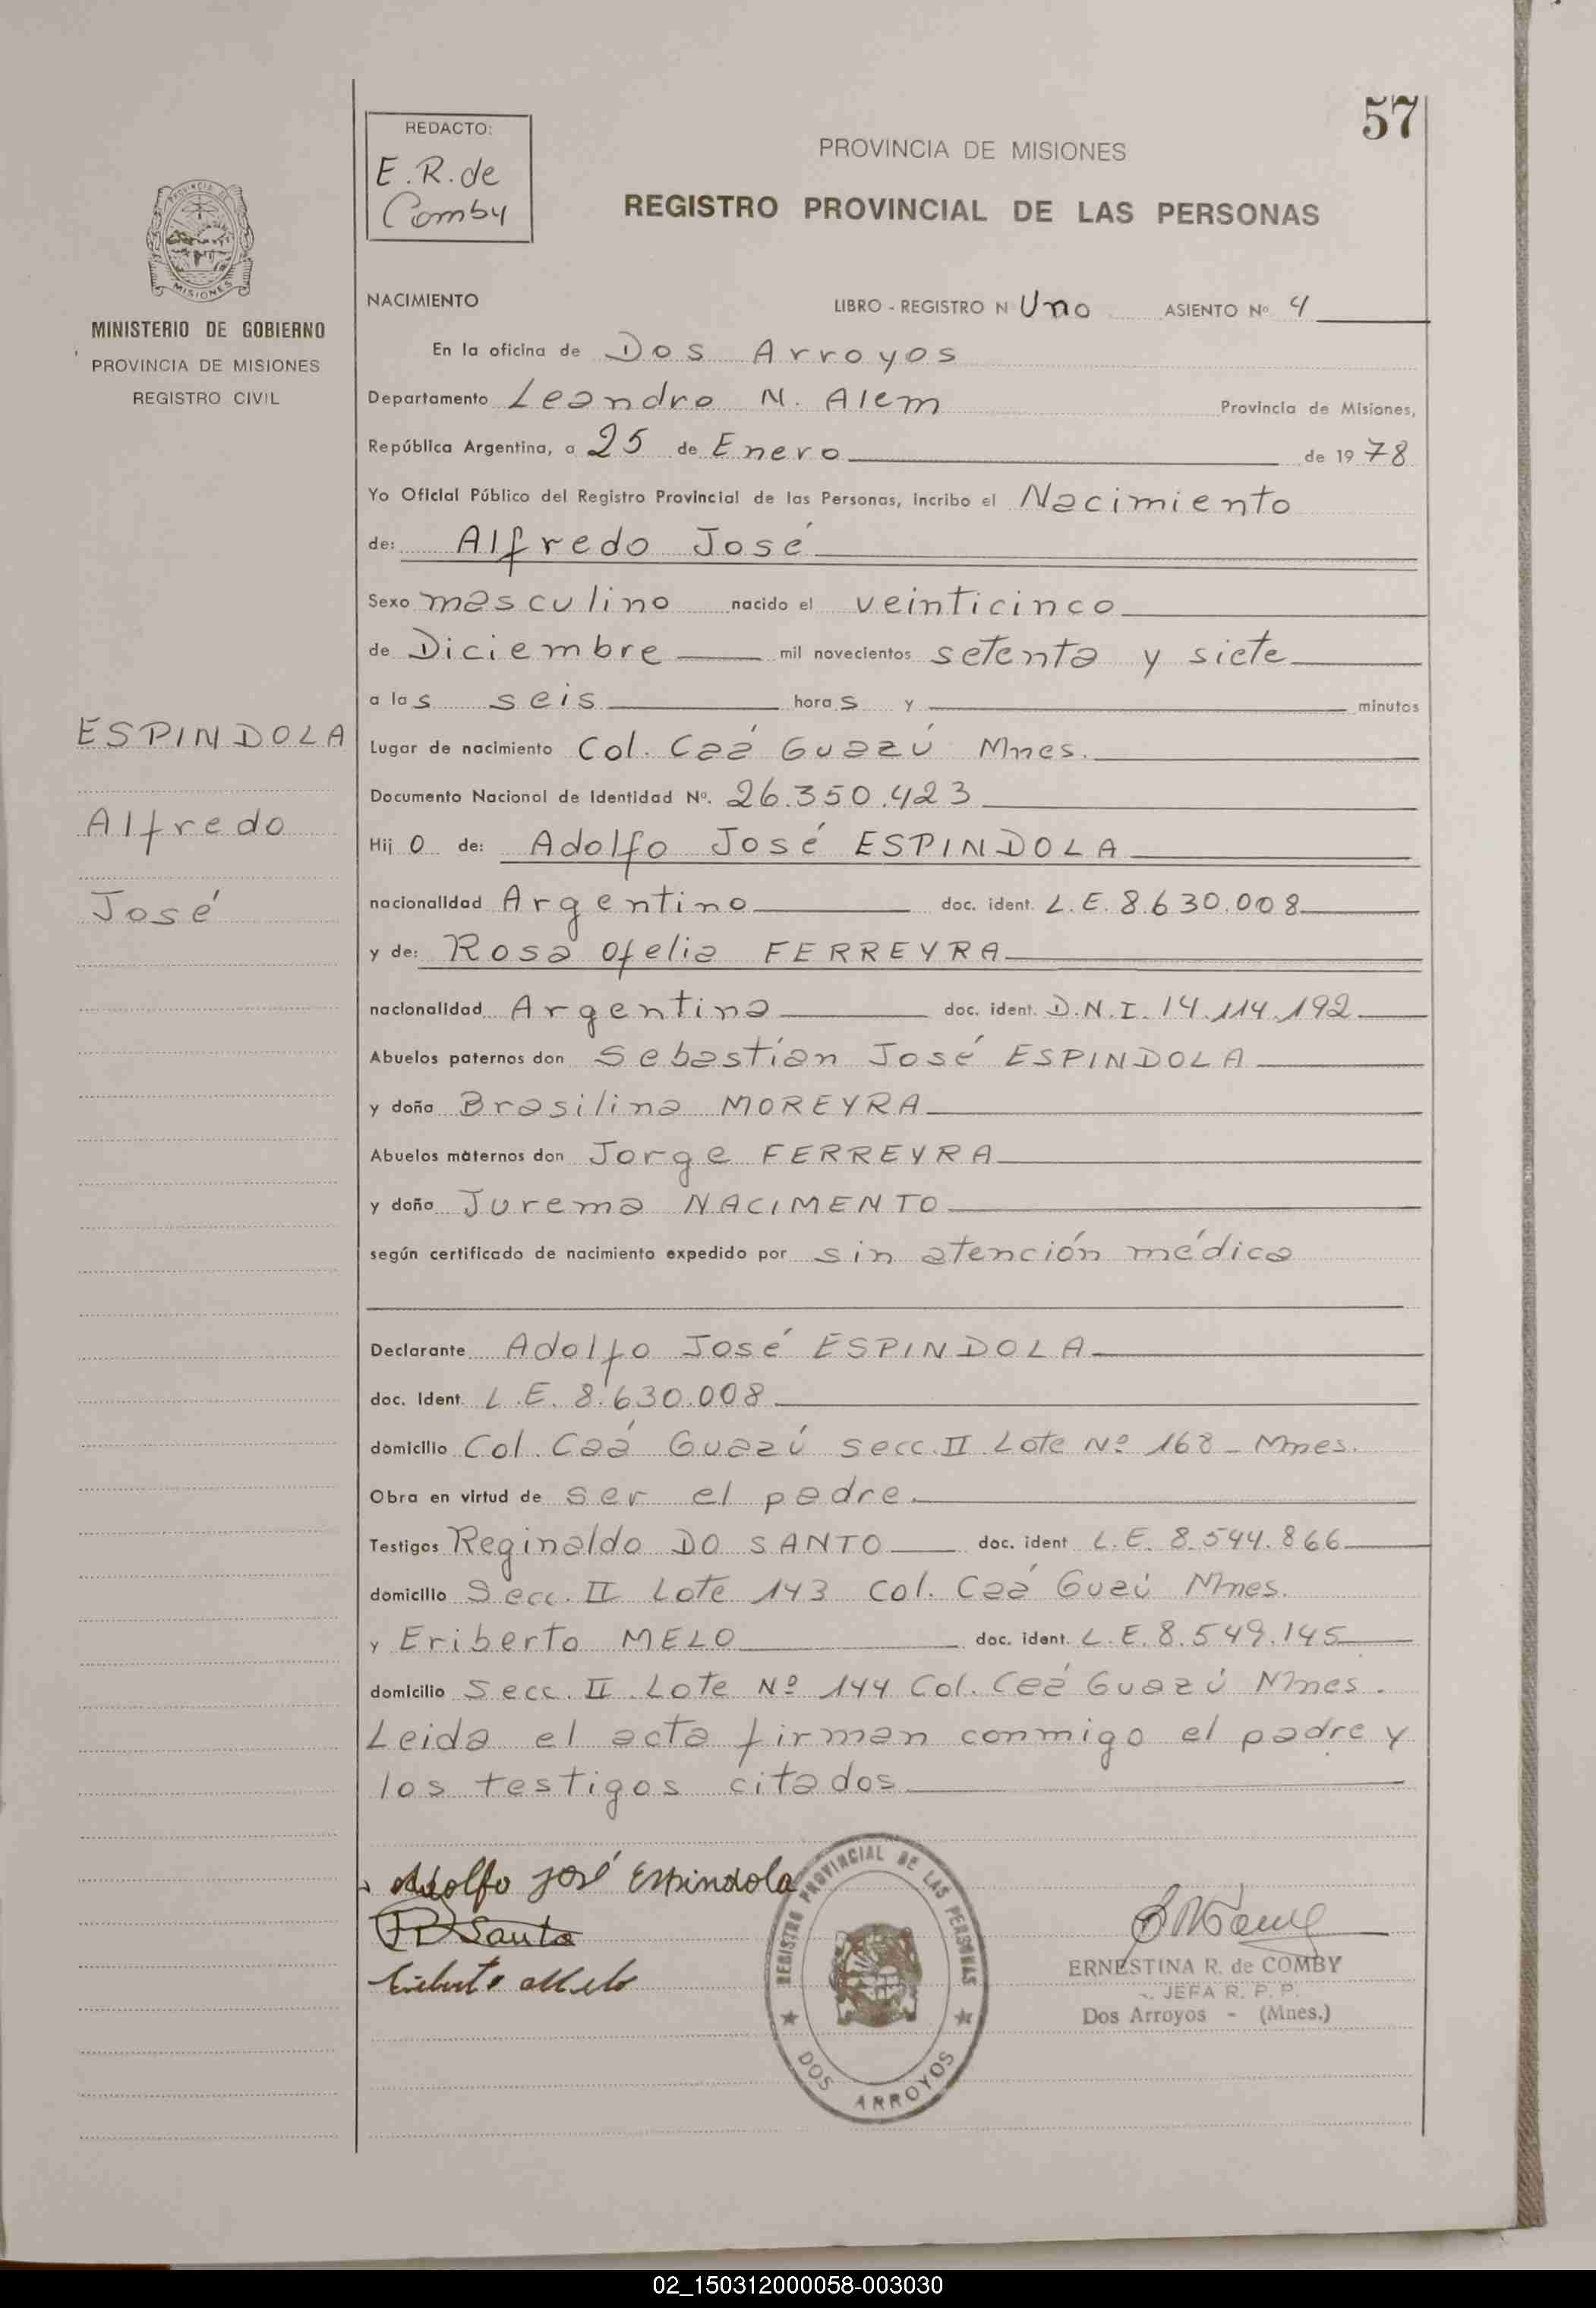 57
REDACTO:
E. R. de
Comby
PROVINCIA DE MISIONES
REGISTRO PROVINCIAL DE LAS PERSONAS
MISIONES
MINISTERIO DE GOBIERNO
PROVINCIA DE MISIONES
REGISTRO CIVIL
ESPINDOLA
Alfredo
José
NACIMIENTO LIBRO - REGISTRO N Uno ASIENTO Nº 4
En la oficina de Dos Arroyos
Departamento Leandro N. Alem Provincia de Misiones,
República Argentina, a 25 de Enero de 1978
Yo Oficial Público del Registro Provincial de las Personas, incribo el Nacimiento
de: Alfredo José
Sexo masculino nacido el veinticinco
de Diciembre mil novecientos setenta y siete
a las seis horas y minutos
Lugar de nacimiento Col. Caá Guazú Mnes.
Documento Nacional de Identidad Nº. 26.350.423
Hijo de: Adolfo José ESPINDOLA
nacionalidad Argentino doc. ident. L.E. 8.630.008
y de: Rosa Ofelia FERREYRA
nacionalidad Argentina doc. ident. D.N.I. 14.114.192
Abuelos paternos don Sebastían José ESPINDOLA
y doña Brasilina MOREYRA
Abuelos maternos don Jorge FERREYRA
y doña Jurema NACIMENTO
según certificado de nacimiento expedido por sin atención médica
Declarante Adolfo José ESPINDOLA
doc. Ident. L.E. 8.630.008
domicilio Col. Caá Guazú secc. II Lote Nº 168 - Mnes.
Obra en virtud de ser el padre.
Testigos Reginaldo DO SANTO doc. ident L.E. 8.544.866
domicilio Secc. II Lote 143 Col. Caá Guzú Mnes.
y Eriberto MELO doc. ident. L.E. 8.549.145
domicilio Secc. II Lote Nº 144 Col. Caá Guazú Mnes.
Leida el acta firman conmigo el padre y
los testigos citados
Adolfo José Espindola
Santo
Eriberto Melo
REGISTRO PROVINCIAL DE LAS PERSONAS
DOS ARROYOS
ERNESTINA R. de COMBY
JEFA R. P. P.
Dos Arroyos - (Mnes.)
02_150312000058-003030